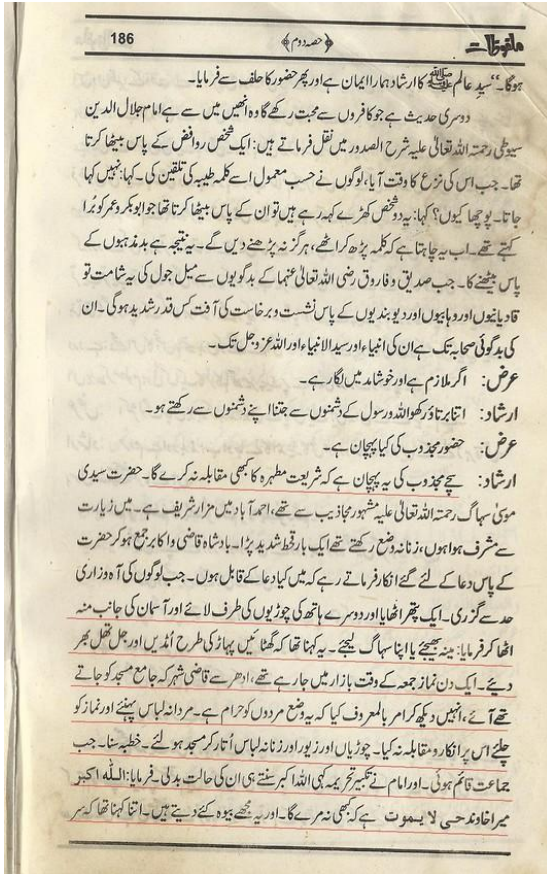 ملفوظات ﴿حصہ دوم﴾ 186
ہوگا۔‘‘ سیدِ عالم ﷺ کا ارشاد ہمارا ایمان ہے اور پھر حضور کا حلف سے فرمایا۔
دوسری حدیث ہے جو کافروں سے محبت رکھے گا وہ انھیں میں سے ہے امام جلال الدین
سیوطی رحمتہ اللہ تعالیٰ علیہ شرح الصدور میں نقل فرماتے ہیں: ایک شخص روافض کے پاس بیٹھا کرتا
تھا۔ جب اس کی نزع کا وقت آیا، لوگوں نے حسب معمول اسے کلمہ طیبہ کی تلقین کی۔ کہا: نہیں کہا
جاتا۔ پوچھا کیوں؟ کہا: یہ دو شخص کھڑے کہہ رہے ہیں تو ان کے پاس بیٹھا کرتا تھا جو ابوبکر و عمر کو بُرا
کہتے تھے۔ اب یہ چاہتا ہے کہ کلمہ پڑھ کر اٹھے، ہرگز نہ پڑھنے دیں گے۔ یہ نتیجہ ہے بدمذہبوں کے
پاس بیٹھنے کا۔ جب صدیق و فاروق رضی اللہ تعالیٰ عنہما کے بدگویوں سے میل جول کی یہ شامت تو
قادیانیوں اور وہابیوں اور دیوبندیوں کے پاس نشست و برخاست کی آفت کس قدر شدید ہوگی۔ ان
کی بدگوئی صحابہ تک ہے ان کی انبیاء اور سید الانبیاء اور اللہ عزوجل تک۔
عرض: اگر ملازم ہے اور خوشامد میں لگا رہے۔
ارشاد: اتنا برتاؤ رکھو اللہ و رسول کے دشمنوں سے جتنا اپنے دشمنوں سے رکھتے ہو۔
عرض: حضور مجذوب کی کیا پہچان ہے۔
ارشاد: سچے مجذوب کی یہ پہچان ہے کہ شریعت مطہرہ کا کبھی مقابلہ نہ کرے گا۔ حضرت سیدی
موسیٰ سہاگ رحمتہ اللہ تعالیٰ علیہ مشہور مجاذیب سے تھے، احمد آباد میں مزار شریف ہے۔ میں زیارت
سے مشرف ہوا ہوں، زنانہ وضع رکھتے تھے ایک بار قحط شدید پڑا۔ بادشاہ قاضی و اکابر جمع ہو کر حضرت
کے پاس دعا کے لئے گئے انکار فرماتے رہے کہ میں کیا دعا کے قابل ہوں۔ جب لوگوں کی آہ و زاری
حد سے گزری۔ ایک پتھر اٹھایا اور دوسرے ہاتھ کی چوڑیوں کی طرف لائے اور آسمان کی جانب منہ
اٹھا کر فرمایا: مینہ بھیجئے یا اپنا سہاگ لیجئے۔ یہ کہنا تھا کہ گھٹائیں پہاڑ کی طرح اُمڈیں اور جل تھل بھر
دیئے۔ ایک دن نماز جمعہ کے وقت بازار میں جا رہے تھے، ادھر سے قاضی شہر کہ جامع مسجد کو جاتے
تھے آئے، انہیں دیکھ کر امر بالمعروف کیا کہ یہ وضع مردوں کو حرام ہے۔ مردانہ لباس پہنئے اور نماز کو
چلئے اس پر انکار و مقابلہ نہ کیا۔ چوڑیاں اور زیور اور زنانہ لباس اُتار کر مسجد ہو لئے۔ خطبہ سنا۔ جب
جماعت قائم ہوئی۔ اور امام نے تکبیر تحریمہ کہی اللہ اکبر سنتے ہی ان کی حالت بدلی۔ فرمایا: اللّٰہ اکبر
میرا خاوند حی لا یموت ہے کہ کبھی نہ مرے گا۔ اور یہ مجھے بیوہ کئے دیتے ہیں۔ اتنا کہنا تھا کہ سر